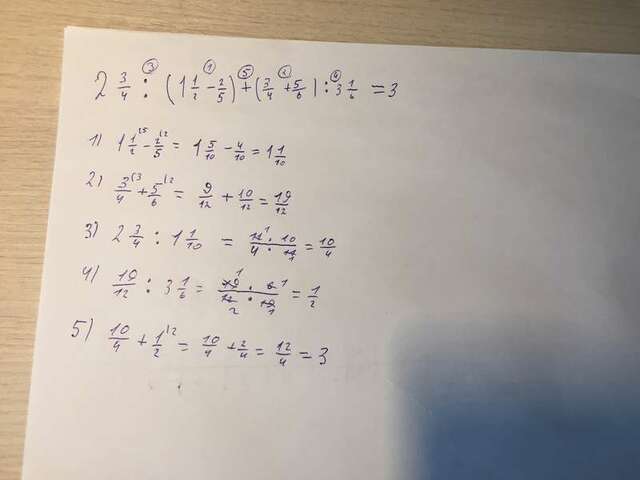 2 3/4 : (1 1/2 - 2/5) + (3/4 + 5/6) : 3 1/6 = 3
1) 1 1/2 - 2/5 = 1 5/10 - 4/10 = 1 1/10
2) 3/4 + 5/6 = 9/12 + 10/12 = 19/12
3) 2 3/4 : 1 1/10 = 11 · 10 / 4 · 11 = 10/4
4) 19/12 : 3 1/6 = 19 · 6 / 12 · 19 = 1/2
5) 10/4 + 1/2 = 10/4 + 2/4 = 12/4 = 3